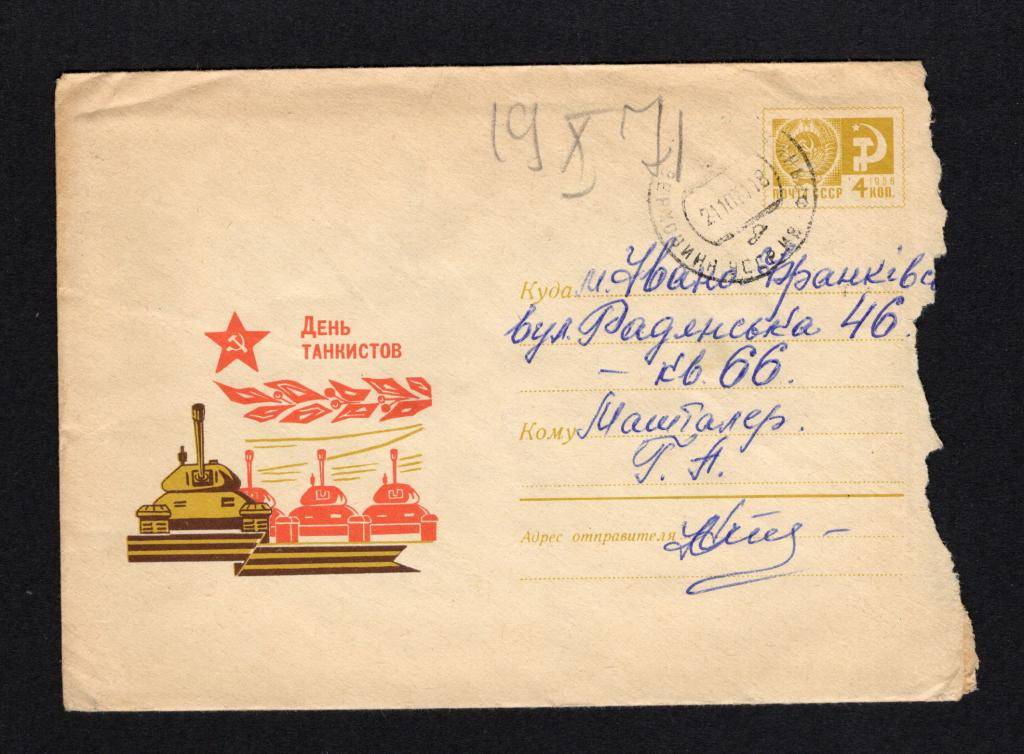 19 X 71
ПОЧТА СССР 1966
4 КОП.
21 10 18
УССР
День
танкистов
Куда м. Івано-Франківс
вул. Радянська 46.
– кв. 66.
Кому Машталер.
Г. А.
Адрес отправителя